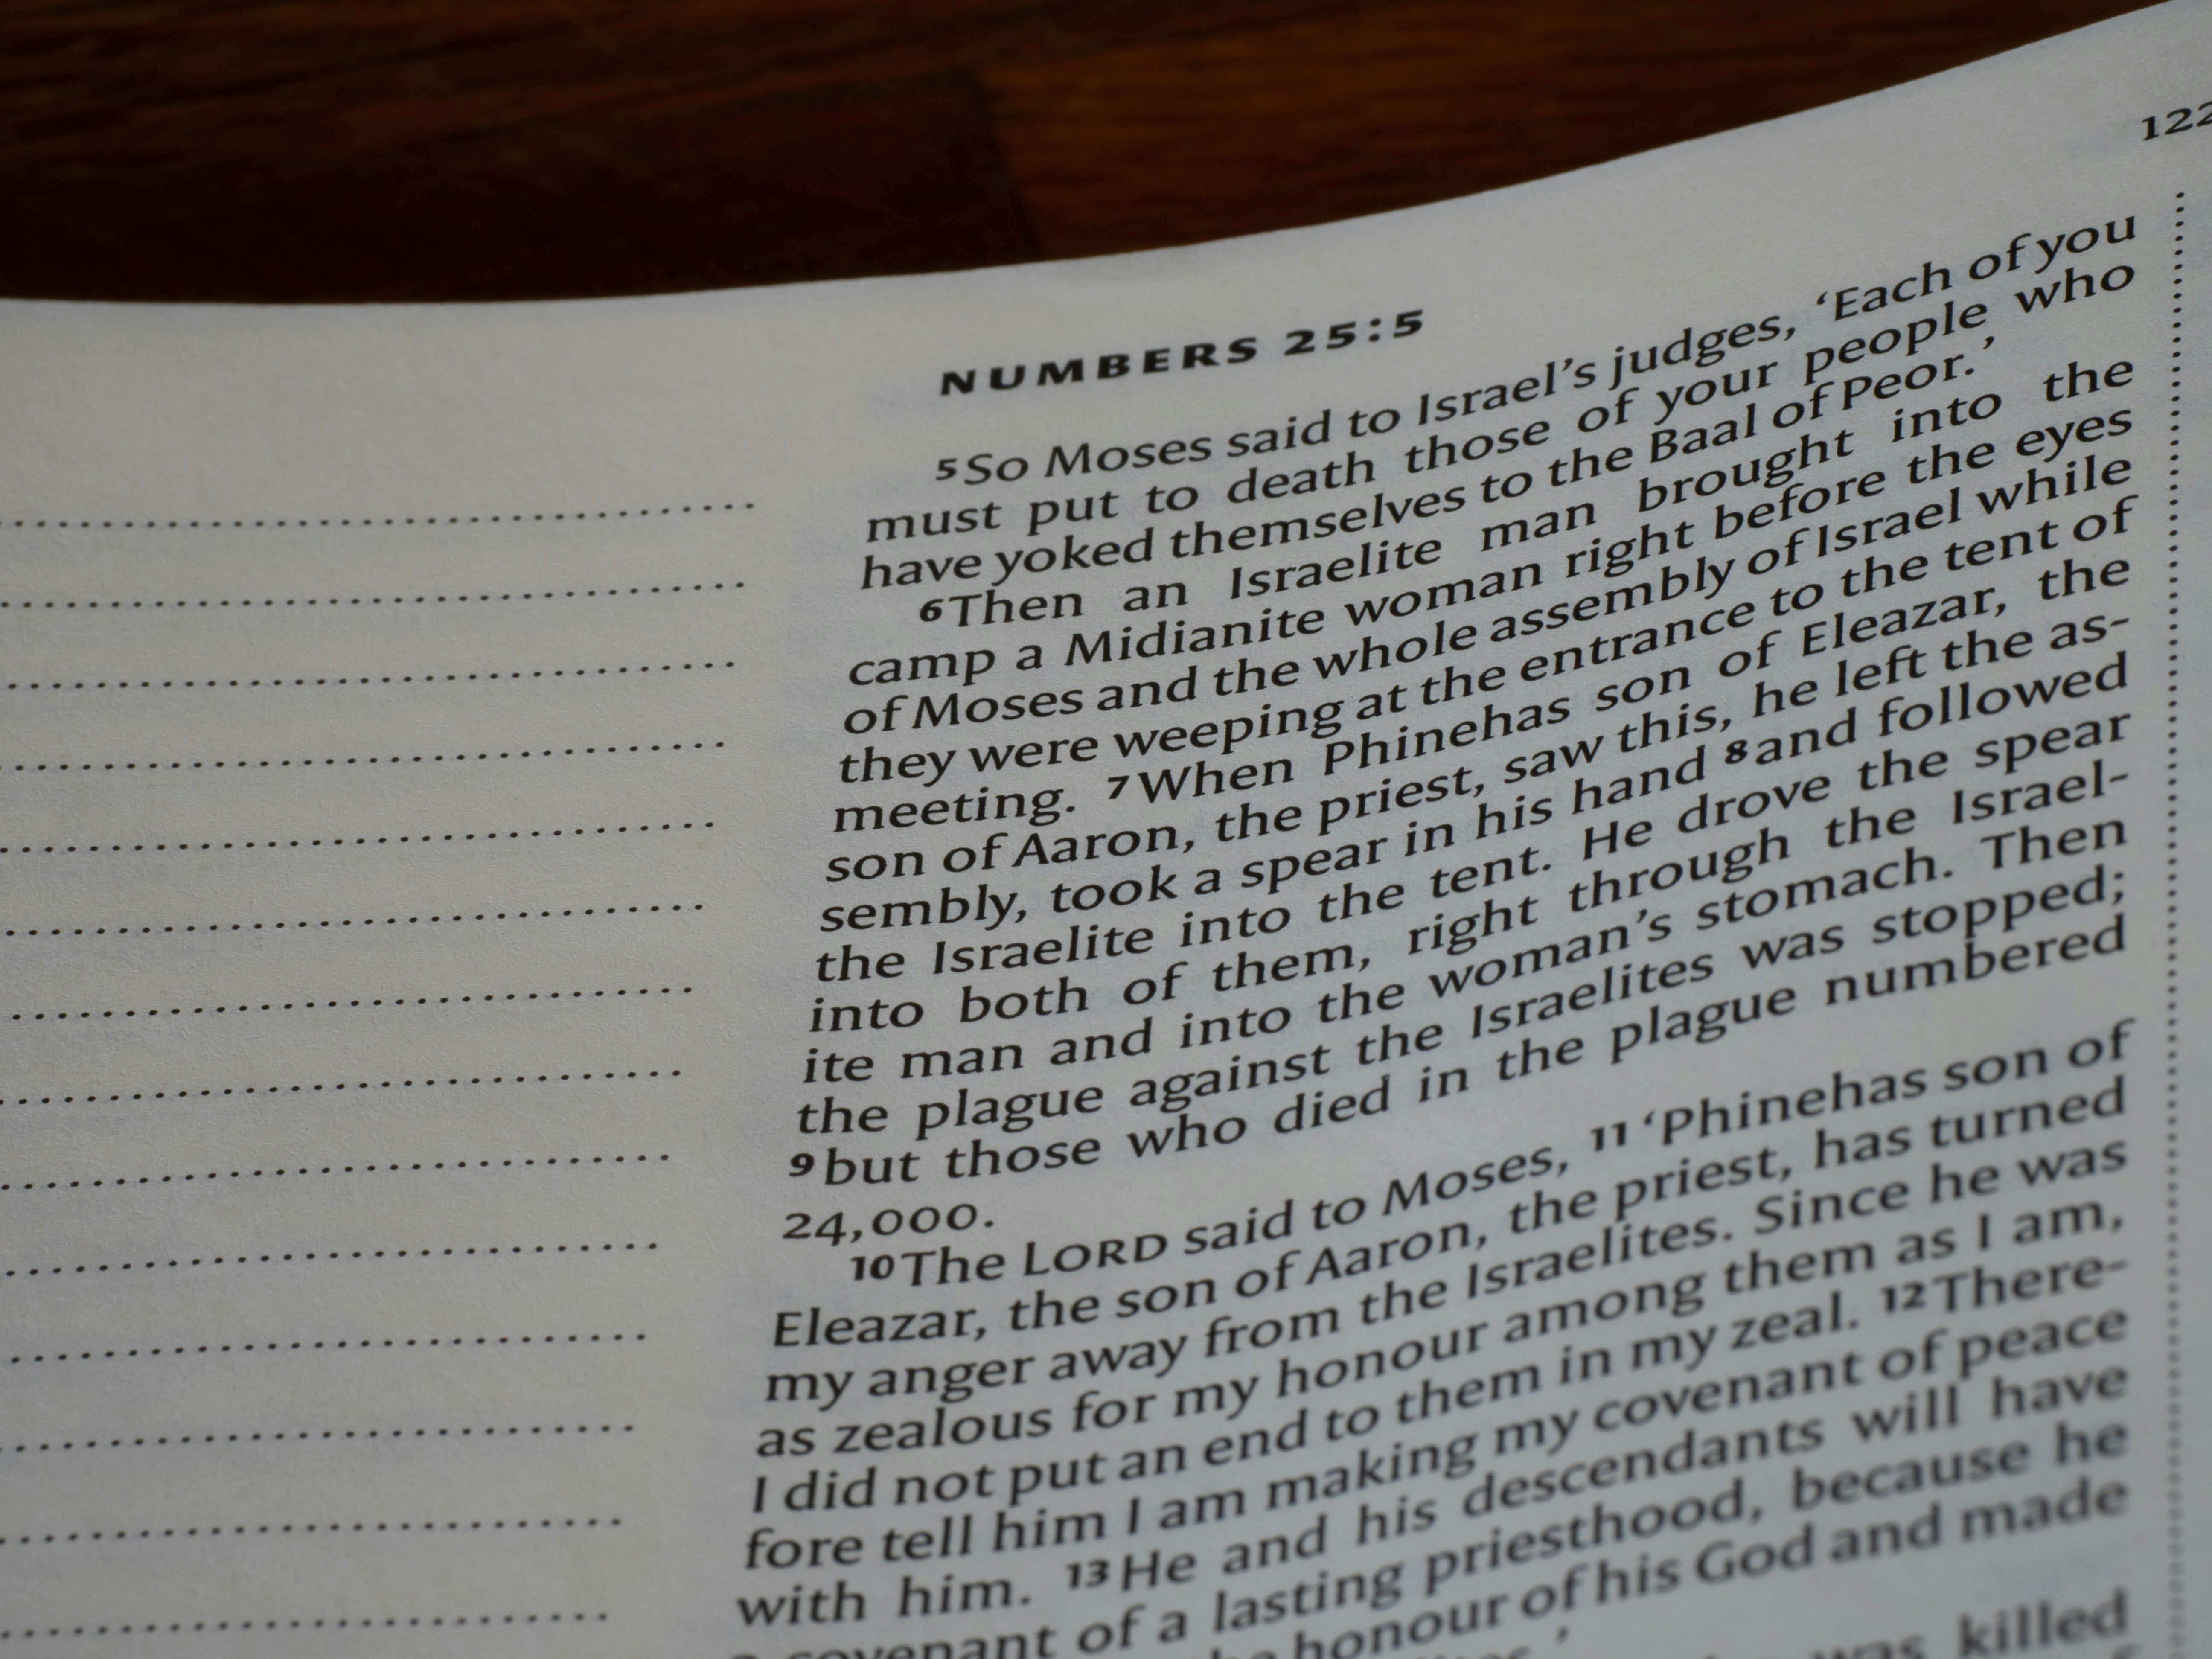 122
NUMBERS 25:5
5 So Moses said to Israel's judges, ‘Each of you
must put to death those of your people who
have yoked themselves to the Baal of Peor.’
6 Then an Israelite man brought into the
camp a Midianite woman right before the eyes
of Moses and the whole assembly of Israel while
they were weeping at the entrance to the tent of
meeting. 7 When Phinehas son of Eleazar, the
son of Aaron, the priest, saw this, he left the as-
sembly, took a spear in his hand 8 and followed
the Israelite into the tent. He drove the spear
into both of them, right through the Israel-
ite man and into the woman's stomach. Then
the plague against the Israelites was stopped;
9 but those who died in the plague numbered
24,000.
10 The LORD said to Moses, 11 ‘Phinehas son of
Eleazar, the son of Aaron, the priest, has turned
my anger away from the Israelites. Since he was
as zealous for my honour among them as I am,
I did not put an end to them in my zeal. 12 There-
fore tell him I am making my covenant of peace
with him. 13 He and his descendants will have
a covenant of a lasting priesthood, because he
honour of his God and made
was killed